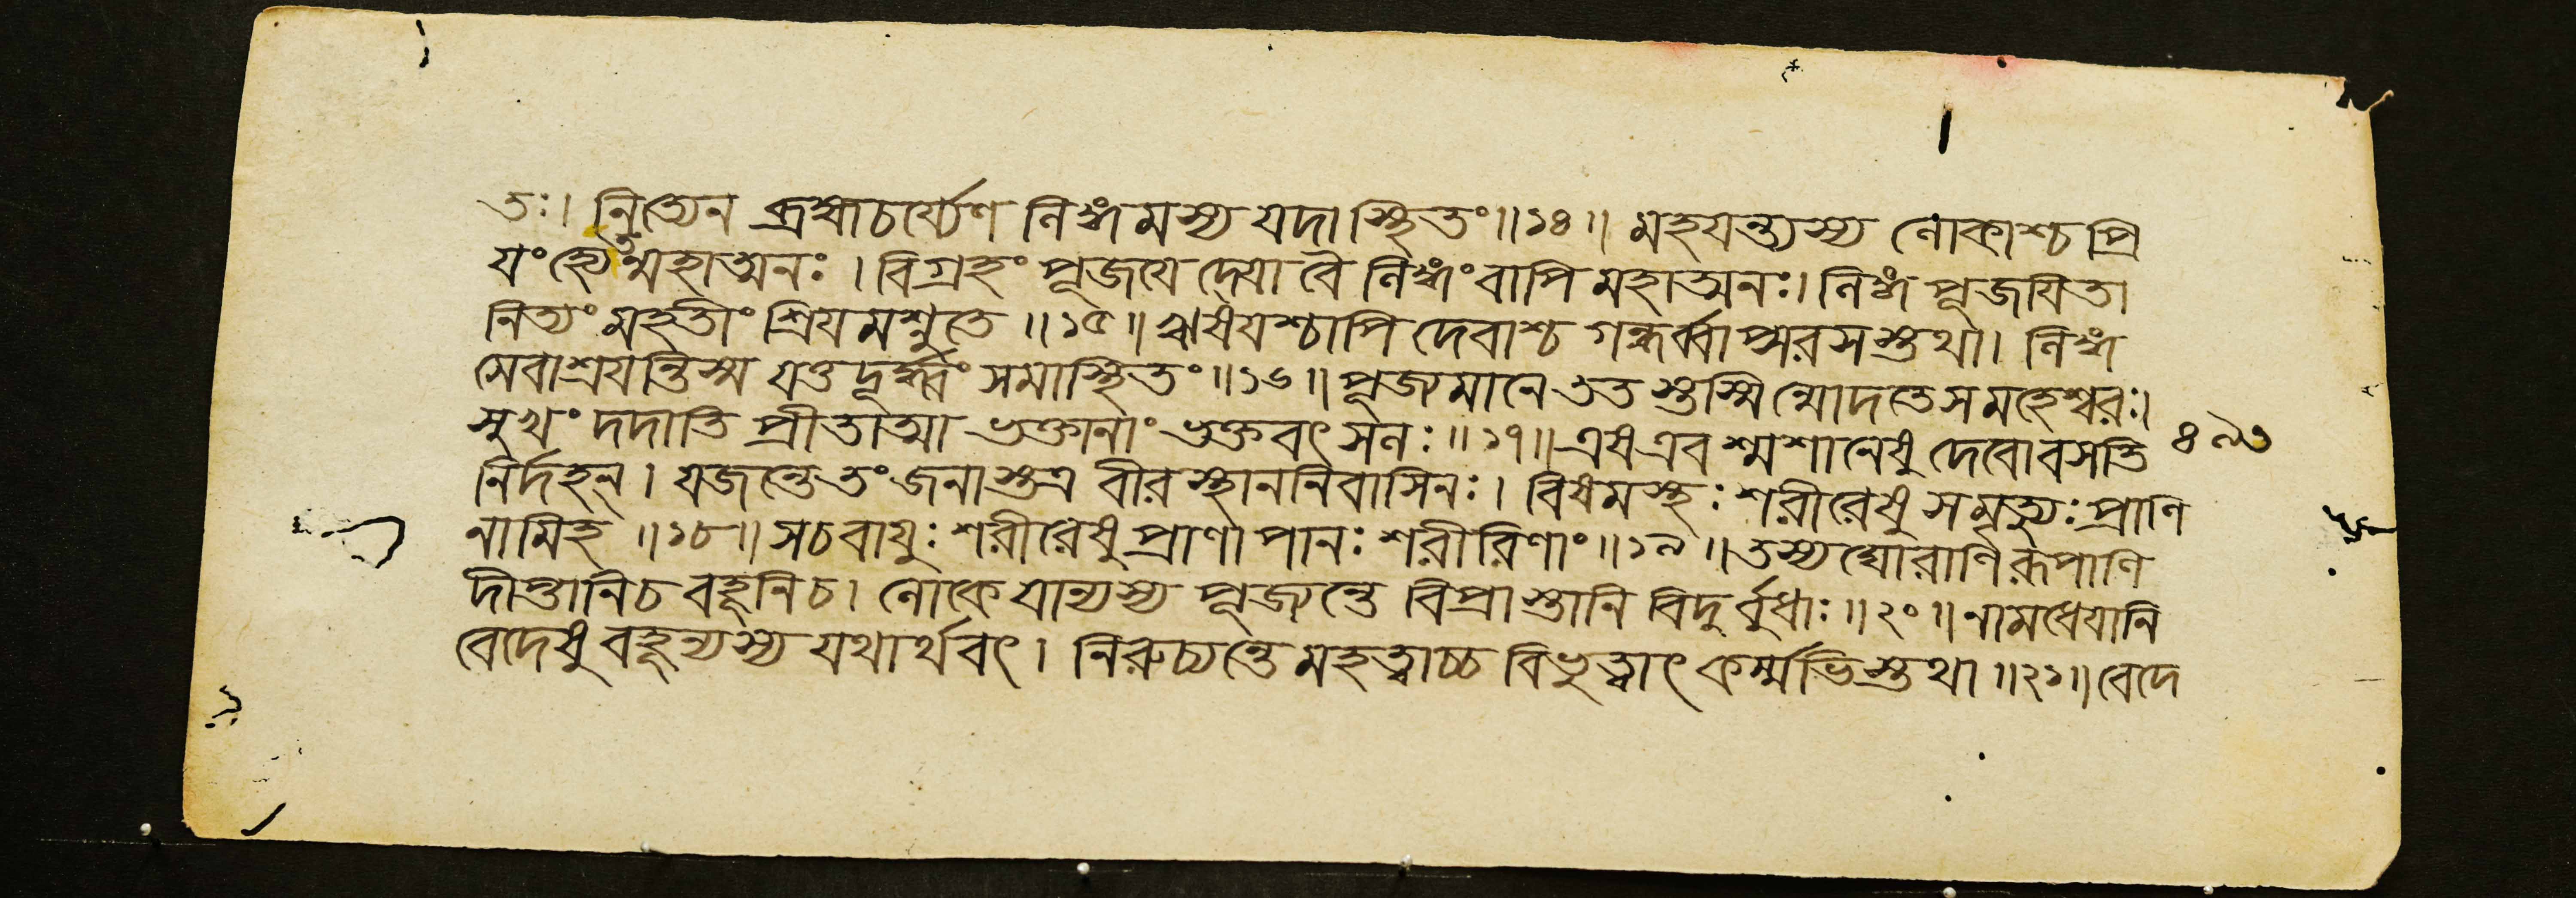 তঃ। নিত্যেন ব্রহ্মচর্য্যেণ লিঙ্গমস্য যদাস্থিতং॥১৪॥ মহযন্ত্যস্য লোকাশ্চ প্রি
যং হ্যেতন্মহাত্মনঃ। বিগ্রহং পূজযেদ্যো বৈ লিঙ্গং বাপি মহাত্মনঃ। লিঙ্গ পূজযিতা
নিত্যং মহতীং শ্রিযমশ্নুতে॥১৫॥ ঋষযশ্চাপি দেবাশ্চ গন্ধর্ব্বাপ্সরসস্তথা। লিঙ্গ
মেবাশ্রযন্তিস্ম যত্তদূর্দ্ধ্বং সমাস্থিতং॥১৬॥ পূজ্যমানে ততস্তস্মিন্মোদতে স মহেশ্বরঃ।
সুখং দদাতি প্রীতাত্মা ভক্তানাং ভক্তবৎসলঃ॥১৭॥ এষ এব শ্মশানেষু দেবো বসতি
নির্দহন্। যজন্তে তং জনাস্তত্র বীরস্থাননিবাসিনঃ। বিষমস্থঃ শরীরেষু স মৃত্যুঃ প্রাণি
নামিহ॥১৮॥ স চ বাযুঃ শরীরেষু প্রাণাপানঃ শরীরিণাং॥১৯॥ তস্য ঘোরাণি রূপাণি
দীপ্তানি চ বহূনি চ। লোকে যান্যস্য পূজ্যন্তে বিপ্রাস্তানি বিদুর্বুধাঃ॥২০॥ নামধেযানি
বেদেষু বহূন্যস্য যথার্থবৎ। নিরুচ্যন্তে মহত্ত্বাচ্চ বিভুত্বাৎ কর্ম্মভিস্তথা॥২১॥ বেদে
৪৯৩